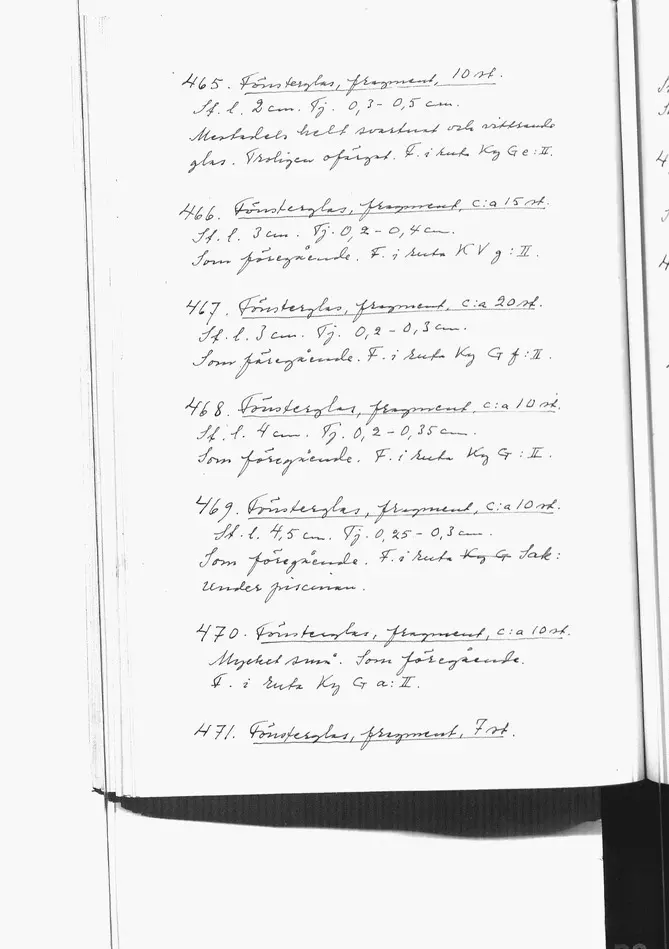 465. Fönsterglas, fragment, 10 st.
St. l. 2 cm. Tj. 0,3-0,5 cm.
Mestadels helt svartnat och vittrande
glas. Troligen ofärgat. F. i ruta Ky G e:II.
466. Fönsterglas, fragment, c:a 15 st.
St. l. 3 cm. Tj. 0,2-0,4 cm.
Som föregående. F. i ruta K V g:II.
467. Fönsterglas, fragment, c:a 20 st.
St. l. 3 cm. Tj. 0,2-0,3 cm.
Som föregående. F. i ruta Ky G f:II.
468. Fönsterglas, fragment, c:a 10 st.
St. l. 4 cm. Tj. 0,2-0,35 cm.
Som föregående. F. i ruta Ky G:II.
469. Fönsterglas, fragment, c:a 10 st.
St. l. 4,5 cm. Tj. 0,25-0,3 cm.
Som föregående. F. i ruta Ky G Sak:
under piscinan.
470. Fönsterglas, fragment, c:a 10 st.
Mycket små. Som föregående.
F. i ruta Ky G a:II.
471. Fönsterglas, fragment, 7 st.